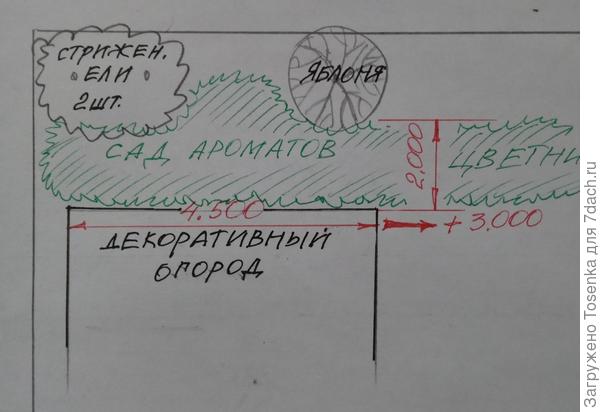 СТРИЖЕН.
ЕЛИ
2 ШТ.
ЯБЛОНЯ
САД АРОМАТОВ
2.000
ЦВЕТНИ
4.500
+ 3.000
ДЕКОРАТИВНЫЙ
ОГОРОД
Загружено Tosenka для 7dach.ru